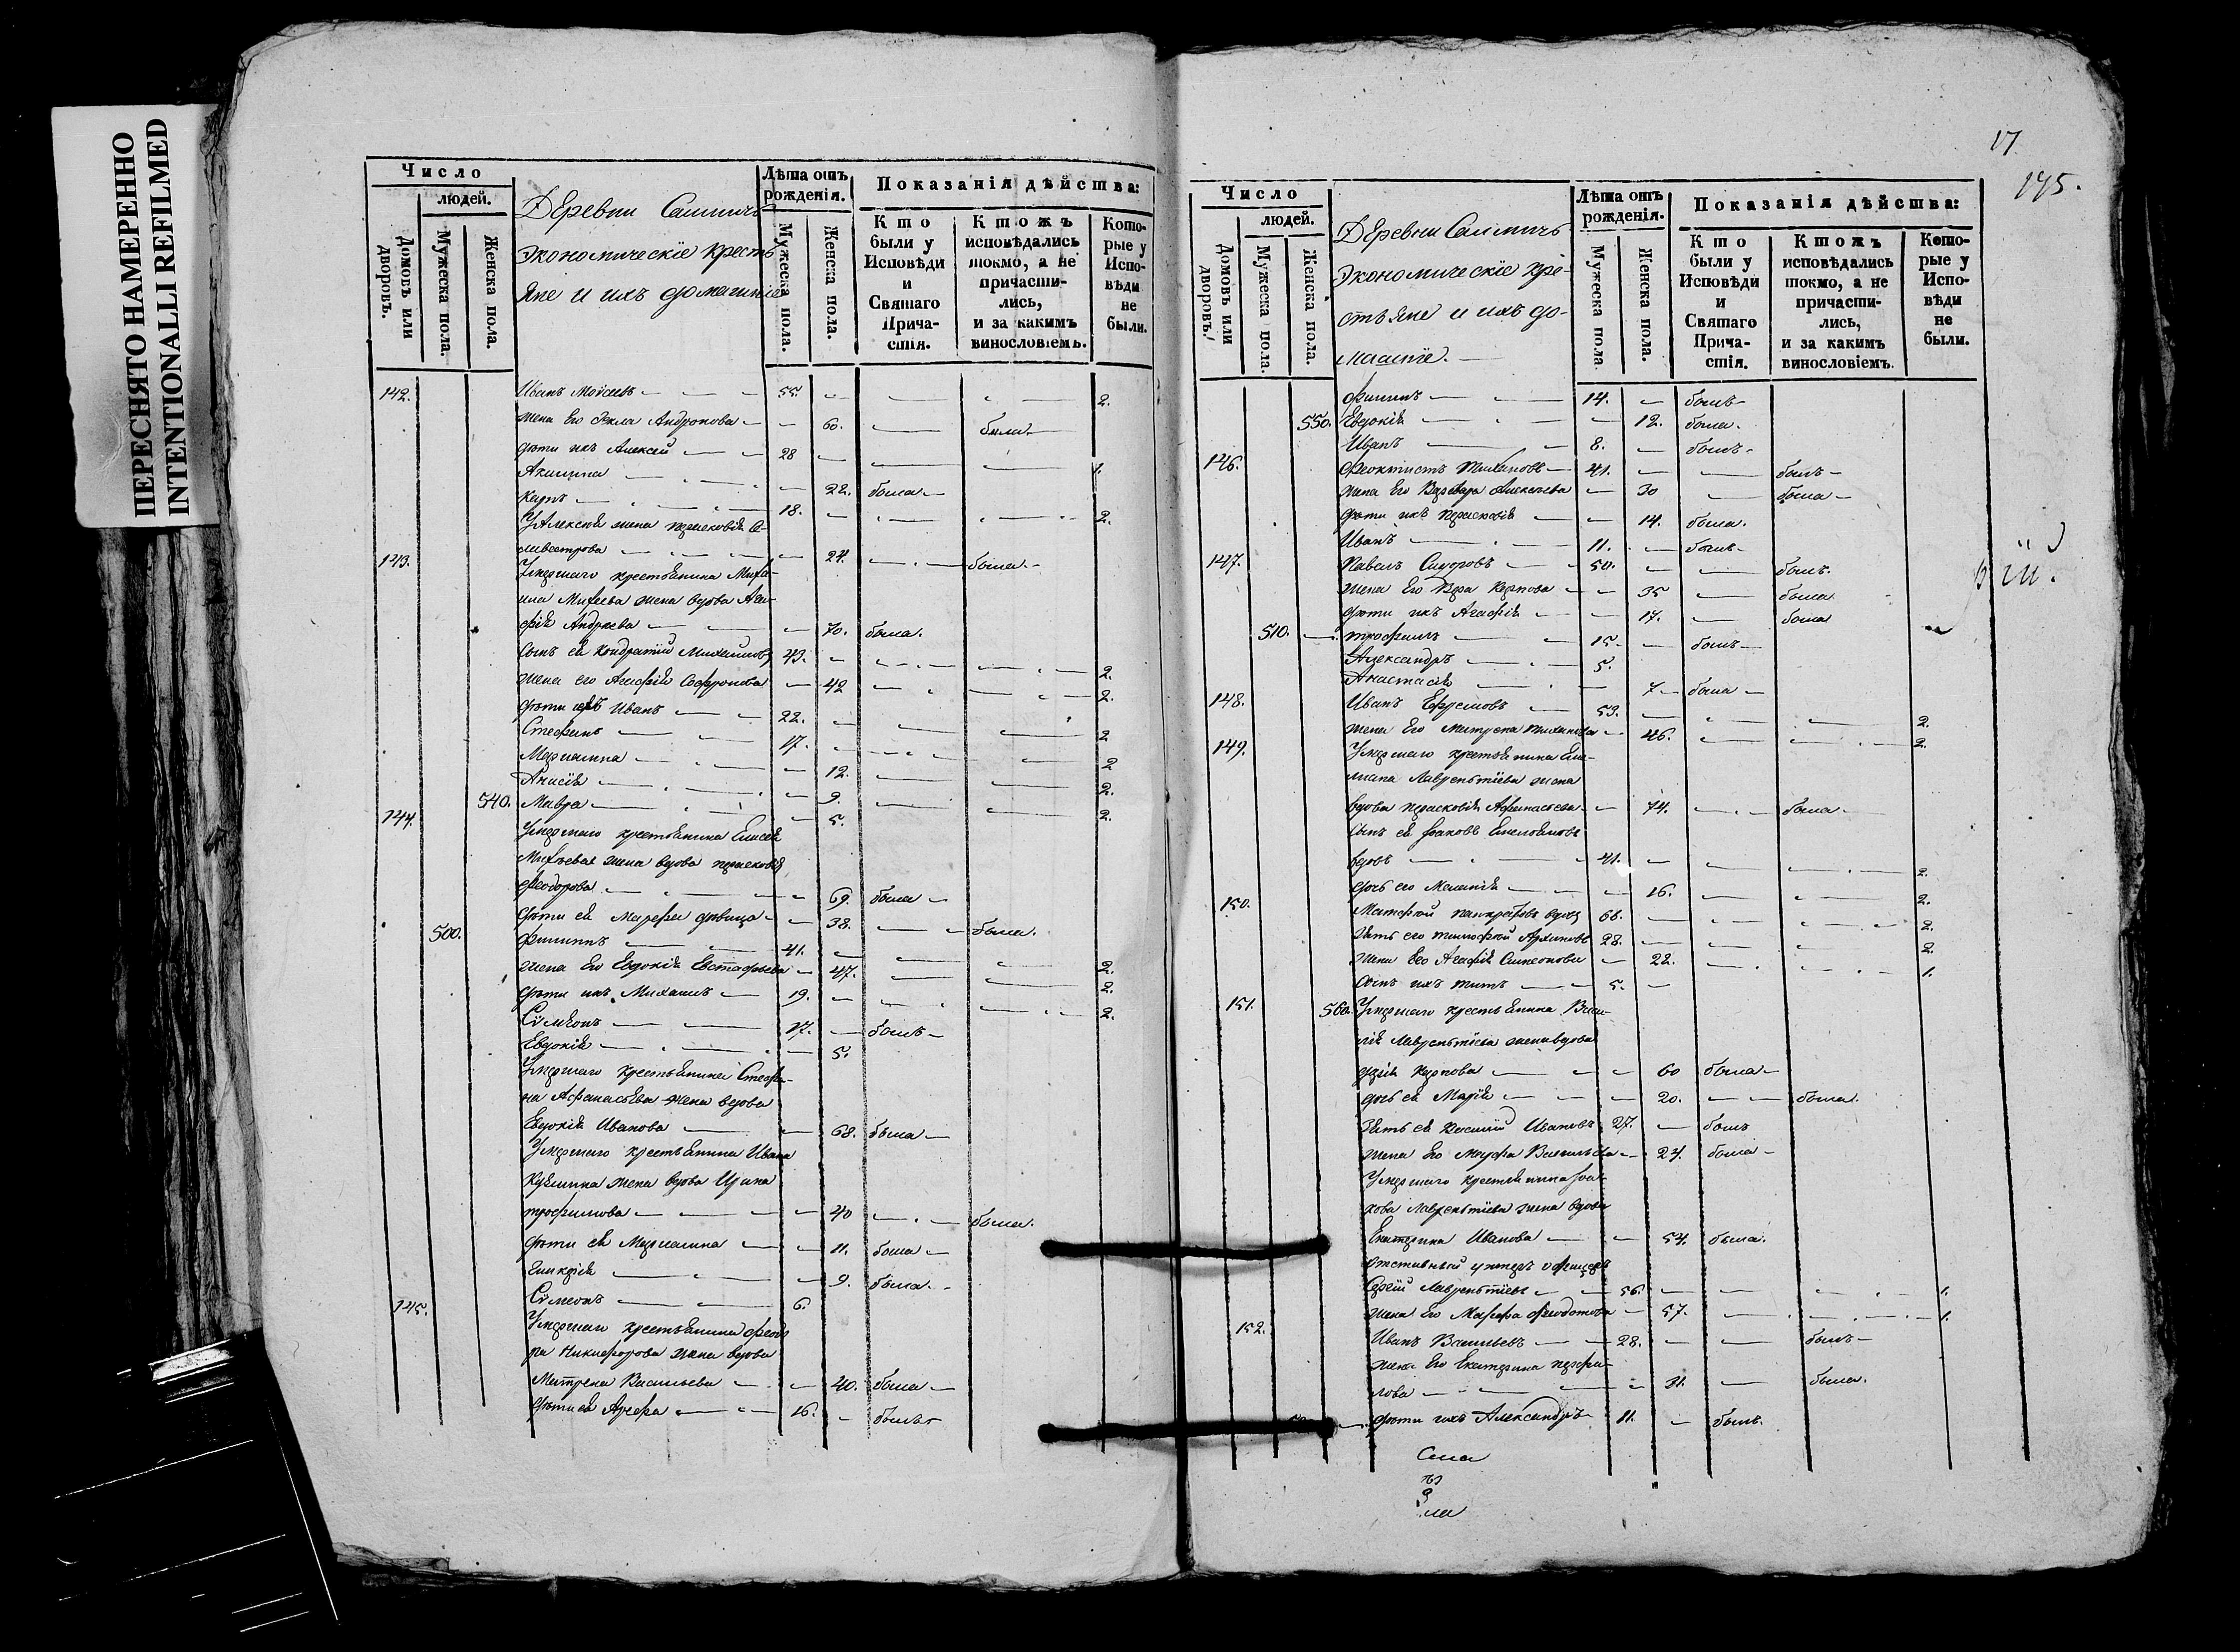 ПЕРЕСНЯТО НАМЕРЕННО
INTENTIONALLI REFILMED
Число
людей.
Домовъ или дворовъ.
Мужеска пола.
Женска пола.
Деревни
Экономическіе кресть
яне и ихъ домашніе
Лѣта отъ рожденія.
Мужеска пола.
Женска пола.
Показанія дѣйства:
Кто были у Исповѣди и Святаго Прича-стія.
Ктожъ исповѣдались токмо, а не причасти-лись, и за какимъ винословіемъ.
Кото-рые у Испо-вѣди не были.
142. Иванъ Моѵсеевъ 55. 2.
жена Его Фекла Андронова 60. была
дѣти ихъ Алексей 28 1.
Акилина 22. была
Карпъ 18. 2.
У Алексѣя жена Парасковія Се-
ливестрова 24. была
143. Умершаго крестьянина Миха-
ила Михеева жена вдова Ага-
фія Андреева 70. была.
Сынъ ея Кондратій Михайловъ 43. 2.
жена его Агафія Софронова 42 2.
дѣти ихъ Иванъ 22. 2
Стефанъ 17. 2
Маріамна 12. 2.
Анисія 9. 2.
540. Мавра 5.
144. Умершаго крестьянина Елисея
Михѣева жена вдова Парасковія
Феодорова 69. была
дѣти ея Марфа дѣвица 38. была.
500. Филиппъ 41. 2.
жена Его Евдокія Евстафьева 47. 2.
дѣти ихъ Михаилъ 19. 2.
Сѵмеонъ 17. былъ
Евдокія 5.
Умершаго крестьянина Стефа-
на Афанасьева жена вдова
Евдокія Иванова 68. была
Умершаго крестьянина Ивана
Кузмина жена вдова Ирина
Трофимова 40 была.
дѣти ея Маріамна 11. была
Гликерія 9. была.
Сѵмеонъ 6.
145. Умершаго крестьянина Феодо
ра Никифорова жена вдова
Матрена Васильева 40. была
дѣти ея Арефа 16. былъ
17
175.
Число
людей.
Домовъ или дворовъ.
Мужеска пола.
Женска пола.
Деревни
Экономическіе кре-
стьяне и ихъ до-
машніе.
Лѣта отъ рожденія.
Мужеска пола.
Женска пола.
Показанія дѣйства:
Кто были у Исповѣди и Святаго Прича-стія.
Ктожъ исповѣдались токмо, а не причасти-лись, и за какимъ винословіемъ.
Кото-рые у Испо-вѣди не были.
Филиппъ 14. былъ
550. Евдокія 12. была.
Иванъ 8. былъ.
146. Феоктистъ Тихановъ 41. былъ
жена Его Варвара Алексѣева 30 была
дѣти ихъ Парасковія 14. была.
Иванъ 11. былъ
147. Павелъ Сидоровъ 50. былъ.
жена Его Вера Карпова 35 была
дѣти ихъ Агафія 17. была
510. Трофимъ 15. былъ
Александръ 5.
Анастасія 7 была
148. Иванъ Ефремовъ 53. 2.
жена Его Матрена Тиханова 46. 2.
149. Умершаго крестьянина Еме-
лиана Лаврентіева жена
вдова Парасковія Афанасьева 74. была
Сынъ ея Іаковъ Емельяновъ
вдовъ 41. 2.
дочь его Меланія 16. 2.
150. Матфей Панкратовъ вдовъ 68. 2.
Зять его Тимофей Архиповъ 28. 2.
жена Его Агафія Симеонова 22. 1.
Сынъ ихъ Титъ 5.
151. 560. Умершаго крестьянина Васи-
лія Лаврентіева жена вдова
Дарія Карпова 60 была
дочь ея Марія 20. была.
Зять ея Василій Ивановъ 27. былъ
жена Его Марфа Васильева 24. была
Умершаго крестьянина Іоа-
кова Лаврентіева жена вдова
Екатерина Иванова 54. была.
Отставный унтеръ офицеръ
Сергій Лаврентіевъ 56. 1.
жена Его Марфа Феодотова 57. 1.
152. Иванъ Васильевъ 28. былъ
жена Его Екатерина Парфи-
лова 31. была.
дѣти ихъ Александръ 11. былъ.